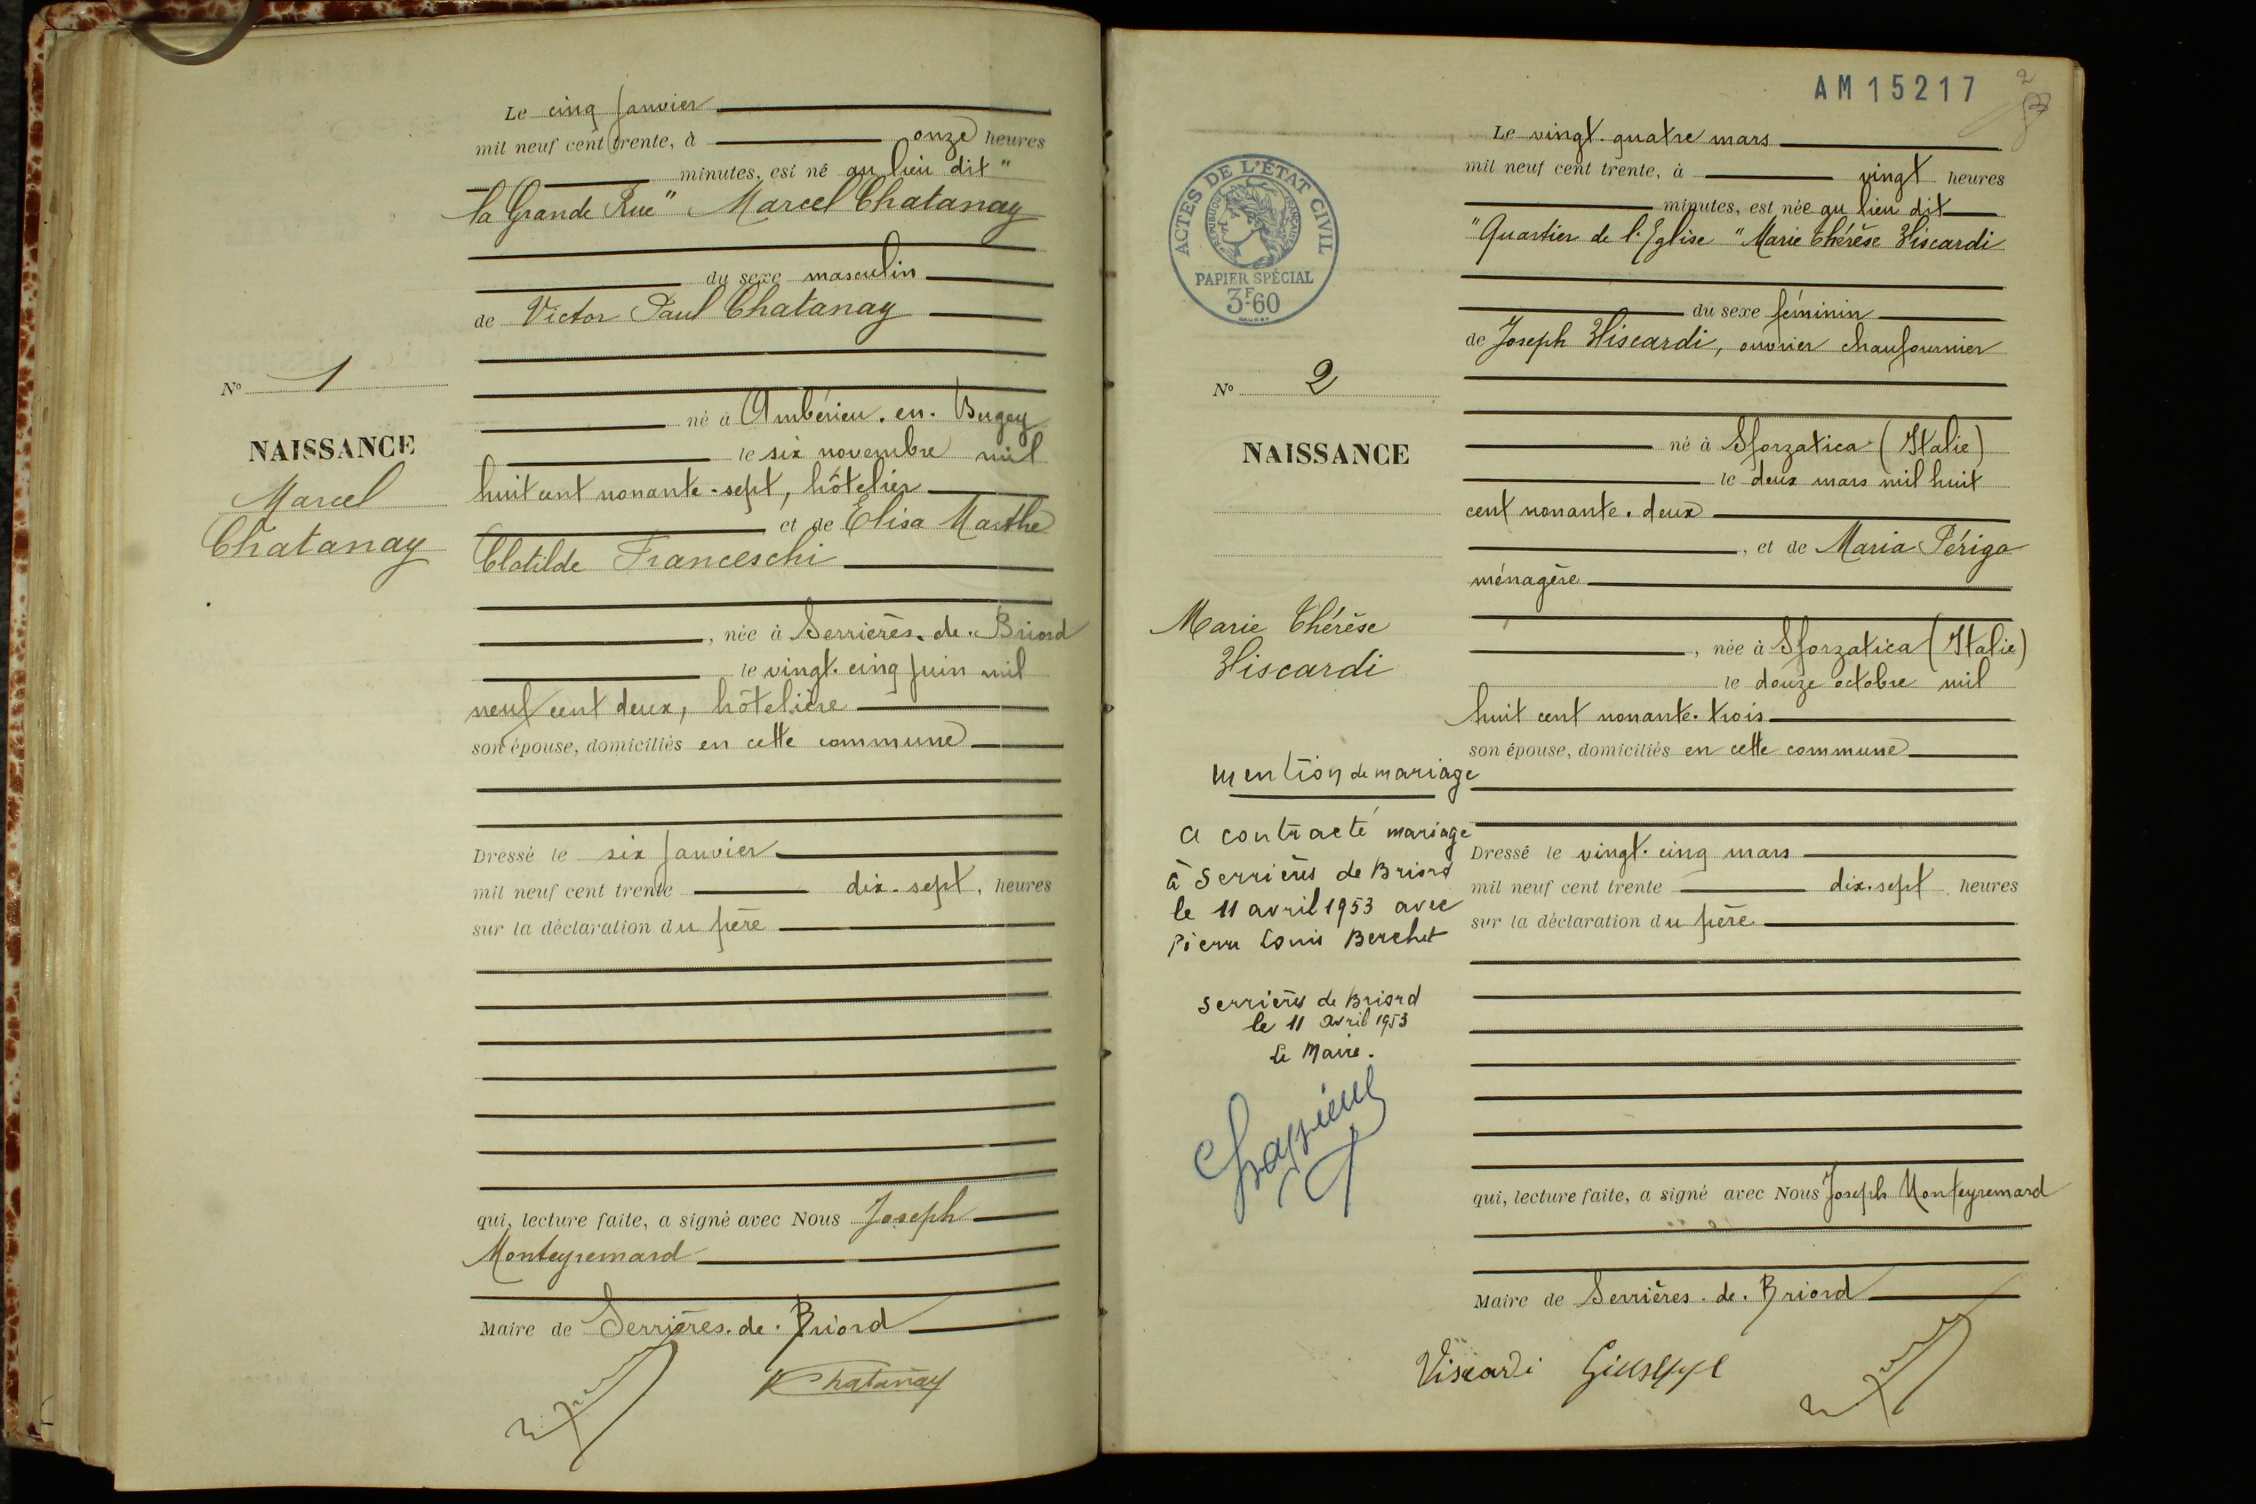 Le cinq janvier
mil neuf cent trente, à onze heures
minutes, est né au lieu dit "
la Grande Rue" Marcel Chatanay
du sexe masculin
de Victor Paul Chatanay
né à Ambérieu.en.Bugey
le six novembre mil
huit cent nonante-sept, hôtelier
et de Elisa Marthe
Clotilde Franceschi
, née à Serrières.de.Briord
le vingt.cinq juin mil
neuf cent deux, hôtelière
son épouse, domiciliés en cette commune
Dressé le six janvier
mil neuf cent trente dix.sept, heures
sur la déclaration du père
qui, lecture faite, a signé avec Nous Joseph
Monteyremard
Maire de Serrières.de.Briord
Chatanay
N° 1
NAISSANCE
Marcel
Chatanay
AM15217
2
Le vingt.quatre mars
mil neuf cent trente, à vingt heures
minutes, est née au lieu dit
"Quartier de l'Eglise" Marie Thérèse Viscardi
du sexe féminin
de Joseph Viscardi, ouvrier chaufournier
né à Sforzatica (Italie)
le deux mars mil huit
cent nonante.deux
, et de Maria Périgo
ménagère
, née à Sforzatica (Italie)
le douze octobre mil
huit cent nonante.trois
son épouse, domiciliés en cette commune
Dressé le vingt.cinq mars
mil neuf cent trente dix.sept heures
sur la déclaration du père
qui, lecture faite, a signé avec Nous Joseph Monteyremard
Maire de Serrières.de.Briord
Viscardi Giuseppe
ACTES DE L'ÉTAT CIVIL
RÉPUBLIQUE FRANÇAISE
PAPIER SPÉCIAL
3F60
N° 2
NAISSANCE
Marie Thérèse
Viscardi
Mention de mariage
a contracté mariage
à Serrières de Briord
le 11 avril 1953 avec
Pierre Louis Berchet
Serrières de Briord
le 11 avril 1953
Le Maire.